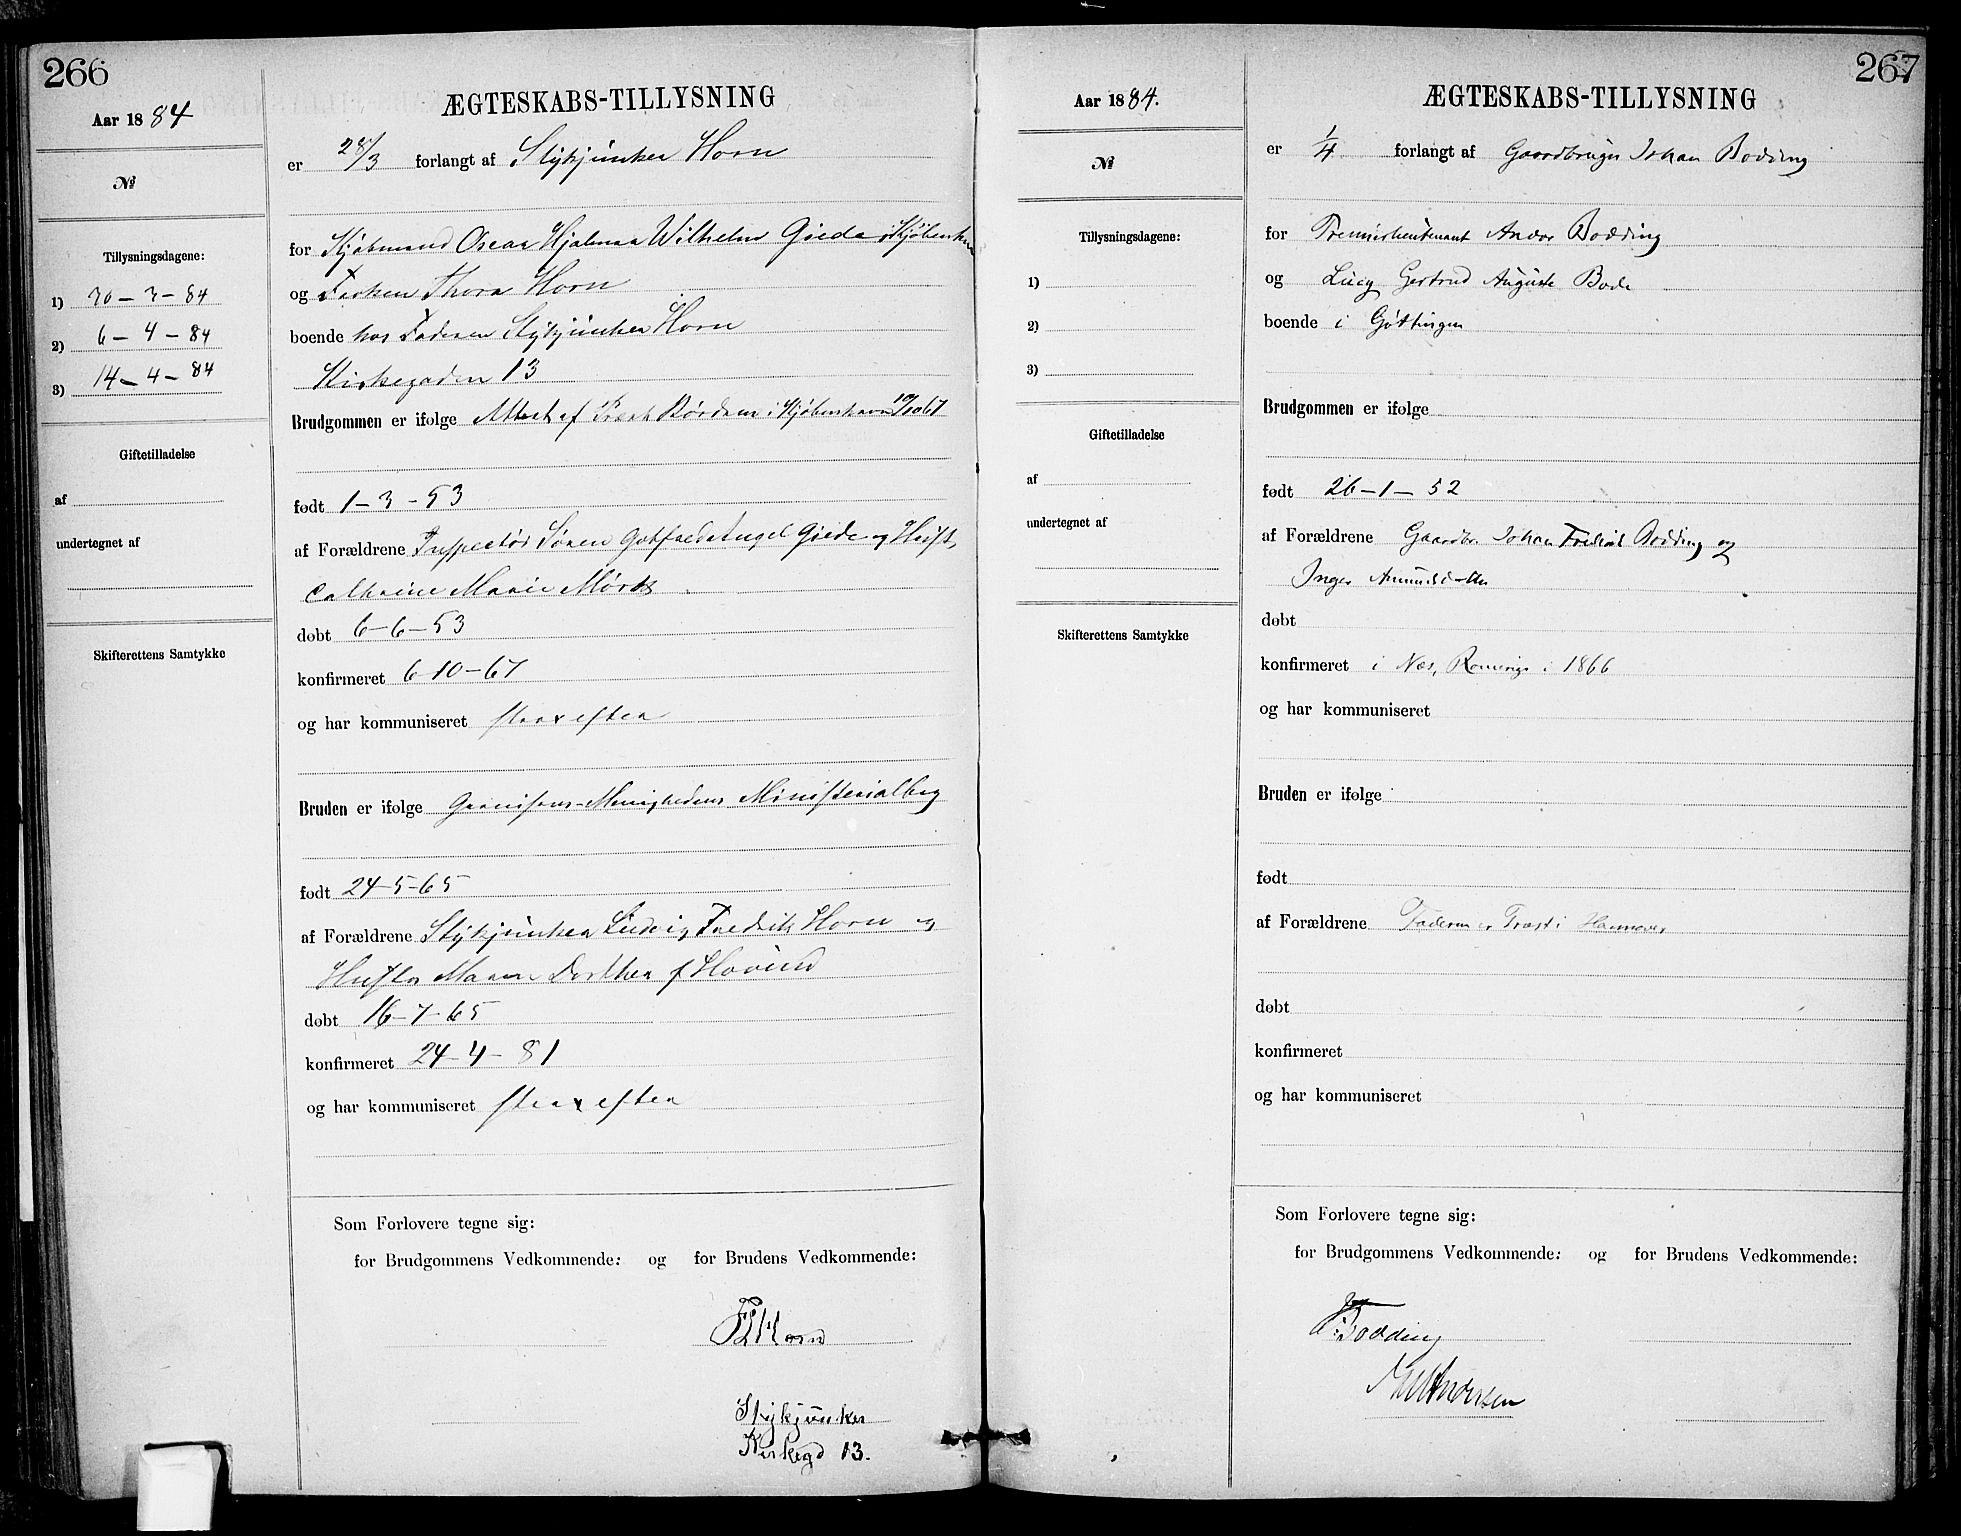 266
Aar 1884
№
Tillysningsdagene:
1) 30-3-84
2) 6-4-84
3) 14-4-84
Giftetilladelse
af
undertegnet af
Skifterettens Samtykke
ÆGTESKABS-TILLYSNING
er 28/3 forlangt af Stykjunker Horn
for Kjøbmand Oscar Hjalmar Wilhelm Giede i Kjøbenhavn
og Frøken Thora Horn
boende hos Faderen Stykjunker Horn
Kirkegaden 13
Brudgommen er ifølge Attest af Præst Rørdam i Kjøbenhavn
født 1-3-53
af Forældrene Inspectør Søren Gotfred Engel Giede og Hust.
Cathrine Marie Mørch
døbt 6-6-53
konfirmeret 6-10-67
og har kommuniseret strax efter
Bruden er ifølge Garnisons-Menighedens Ministerialbog
født 24-5-65
af Forældrene Stykjunker Ludvig Fredrik Horn og
Hustru Maren Dorthea f Hovind
døbt 16-7-65
konfirmeret 24-4-81
og har kommuniseret strax efter
Som Forlovere tegne sig:
for Brudgommens Vedkommende: og for Brudens Vedkommende:
Horn
Stykjunker
Kirkegd 13.
267
Aar 1884.
№
Tillysningsdagene:
1)
2)
3)
Giftetilladelse
af
undertegnet af
Skifterettens Samtykke
ÆGTESKABS-TILLYSNING
er 1/4 forlangt af Gaardbruger Johan Bødding
for Premierlieutenant Andor Bødding
og Lucy Gertrud Auguste Bode
boende i Gøttingen
Brudgommen er ifølge
født 26-1-52
af Forældrene Gaardbr. Johan Fredrik Bødding og
Inger Amundsdatter
døbt
konfirmeret i Nes, Romerige i 1866
og har kommuniseret
Bruden er ifølge
født
af Forældrene Faderen er Præst i Hannover
døbt
konfirmeret
og har kommuniseret
Som Forlovere tegne sig:
for Brudgommens Vedkommende: og for Brudens Vedkommende:
Bødding